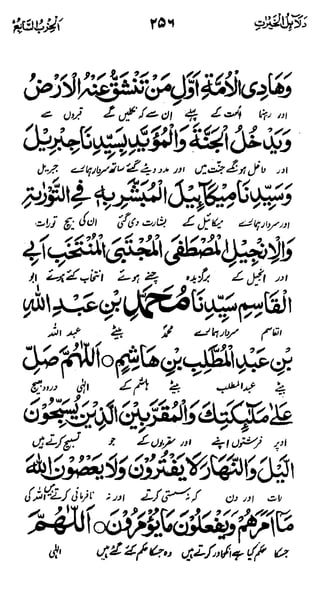 دلائل الخیرت ٢٥٦ الحزب السابع
وَهَادِی الْاُمَّةِ اَوَّلِ مَنْ تَنْشَقُّ عَنْهُ الْاَرْضُ
اور رہنما امت کے پہلے ان کے کہ نکلیں گے قبروں سے
وَیَدْخُلُ الْجَنَّةَ وَالْمُؤَیَّدِ بِسَیِّدِنَا جِبْرِیْلَ
اور داخل ہونگے جنت میں اور مدد دیئے گئے ساتھ سردار ہمارے جبریل
وَسَیِّدِنَا مِیْكَآئِیْلَ الْمُبَشَّرِ بِهٖ فِی التَّوْرٰىةِ
اور سردار ہمارے میکائیل کے بشارت دی گئی ان کی بیچ تورات
وَالْاِنْجِیْلِ الْمُصْطَفٰی الْمُجْتَبٰی الْمُنْتَخَبِ اَبِی
اور انجیل کے برگزیدہ چنے ہوئے انتخاب کئے ہوئے ابو
الْقَاسِمِ سَیِّدِنَا مُحَمَّدِ بْنِ عَبْدِ اللّٰهِ
القاسم سردار ہمارے محمد بیٹے عبد اللہ
بْنِ عَبْدِ الْمُطَّلِبِ بْنِ هَاشِمٍ ○ اَللّٰهُمَّ صَلِّ
بیٹے عبد المطلب بیٹے ہاشم کے الٰہی درود بھیج
عَلٰی مَلٰٓئِكَتِكَ وَالْمُقَرَّبِیْنَ الَّذِیْنَ یُسَبِّحُوْنَ
اوپر فرشتوں اپنے اور مقربوں کے جو تسبیح کرتے ہیں
الَّیْلَ وَالنَّهَارَ لَا یَفْتُرُوْنَ وَلَا یَعْصُوْنَ اللّٰهَ
رات اور دن کہ نہ سستی کرتے اور نہ نافرمانی کرتے ہیں اللہ کی
مَا اَمَرَهُمْ وَیَفْعَلُوْنَ مَا یُؤْمَرُوْنَ ○ اَللّٰهُمَّ
جسکا حکم کیا ہے انکو اور کرتے ہیں وہ جسکا حکم کئے گئے ہیں الٰہی